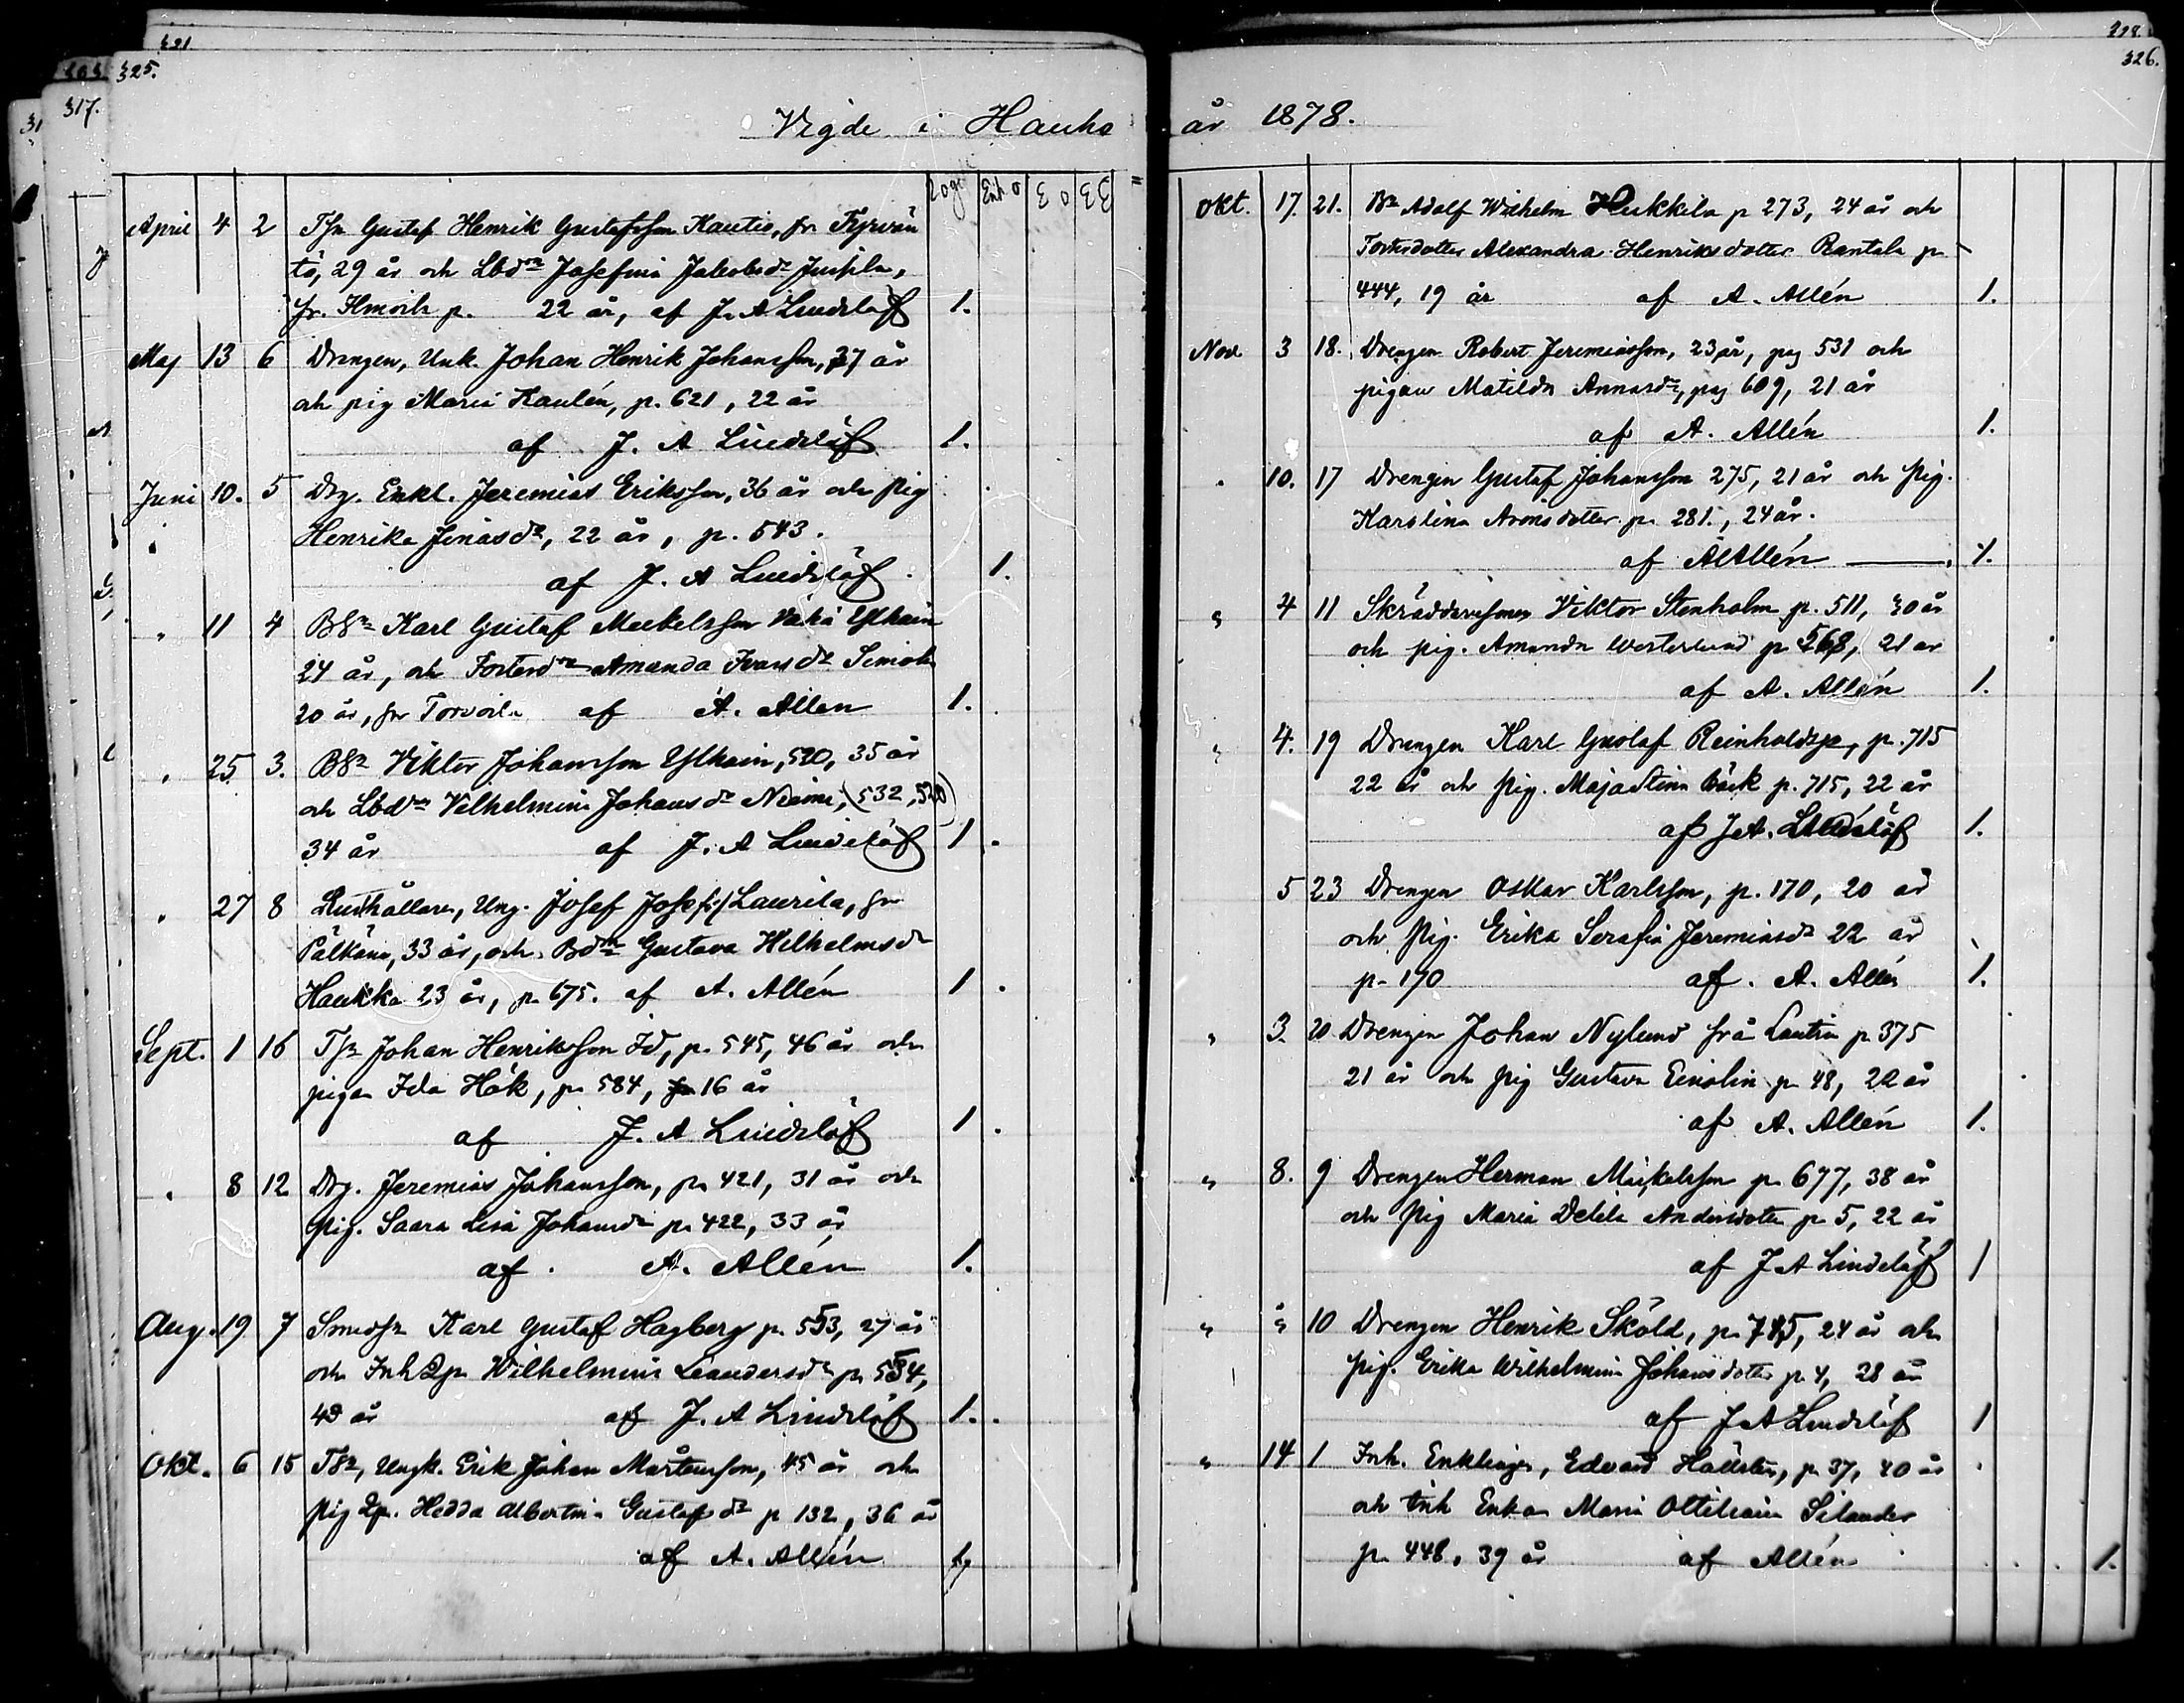 325.
317.
326.
Vigde i Hauho år 1878.
April 4 2 Tsn Gustaf Henrik Gustafsson Kautio, fr Tyrvän
tö, 29 år och Lbdn Josefina Jakobsdr Jussila,
fr. Ilmoila p. 22 år, af J. A Lindelöf 1.
Maj 13 6 Drengen, Unk. Johan Henrik Johansson, 27 år
och pig Maria Kaulén, p. 621, 22 år
af J. A Lindelöf 1.
Juni 10. 5 Drg. Enkl. Jeremias Eriksson, 36 år och pig
Henrika Jonasdr, 22 år, p. 543.
af J. A Lindelöf 1.
" 11 4 BSn Karl Gustaf Mickelsson Vähä Uhlhain
24 år, och Torterdn Amanda Ivarsdr Simola
20 år, fr Torvoila af A. Allén 1.
" 25 3. BSn Viktor Johansson 520, 35 år
och Lbdn Vilhelmina Johansdr Niemi, (532, 520)
34 år af J. A Lindelöf 1.
" 27 8 Rusthållaren, Ung. Josef Josefss Laurila, fr
Pälkäne, 33 år, och Bdn Gustava Wilhelmsdr
Haukka 23 år, p. 675. af A. Allén 1.
Sept. 1 16 Tsn Johan Henriksson p. 545, 46 år och
pigan Ida Hök, p. 584, 16 år
af J. A Lindelöf 1.
" 8 12 Drg. Jeremias Johansson, p. 421, 31 år och
pig. Saara Lisa Johansdr p. 422, 33 år
af A. Allén 1.
Aug. 19 7 Smedsn Karl Gustaf Hagberg p. 553, 27 år
och Inh Qp Wilhelmina Leandersdr p. 554,
år af J. A Lindelöf 1.
Okt. 6 15 TSn, Ungk. Erik Johan Mårtensson, 45 år och
pig Qp. Hedda Albertina Gustafsdr p 132, 36 år
af A. Allén 1.
Okt. 17. 21. Bn Adolf Wilhelm Hukkila p 273, 24 år och
Torterdotter Alexandra Henriksdotter Rantala p
444, 19 år af A. Allén 1.
Nov. 3 18. Drengen Robert Jeremiasson, 23 år, pag 531 och
pigan Matilda Annasdr, pag 609, 21 år
af A. Allén 1.
" 10. 17 Drengen Gustaf Johansson 275, 21 år och pig.
Karolina Aronsdotter p. 281., 24 år.
af A. Allén 1.
" 4 11 Skräddaresonen Viktor Stenholm p. 511, 30 år
och pig. Amanda Westerlund p. 568, 21 år
af A. Allén 1.
" 4. 19 Drengen Karl Gustaf Reinholdsson, p. 715
22 år och pig. Maja Stina Bäck p. 715, 22 år
af J. A. Lindelöf 1.
5 23 Drengen Oskar Karlsson, p. 170, 20 år
och pig. Erika Serafia Jeremiasdr 22 år
p. 170 af. A. Allén 1.
" 3. 20 Drengen Johan Nylund frå Lautia p. 375
21 år och pig Gustava Einolin p. 48, 22 år
af A. Allén 1.
" 8. 9 Drengen Herman Mickelsson p. 677, 38 år
och pig Maria Delila Andersdotter p 5, 22 år
af J A Lindelöf 1
" " 10 Drengen Henrik Sköld, p. 745, 24 år och
pig. Erika Wilhelmina Johansdotter p 4, 28 år
af J A Lindelöf 1
" 14 1 Inh. Enklingen, Edvard Hällsten, p. 37, 40 år
och Inh Enkan Maria Ottiliana Silander
p. 448, 39 år af Allén 1.